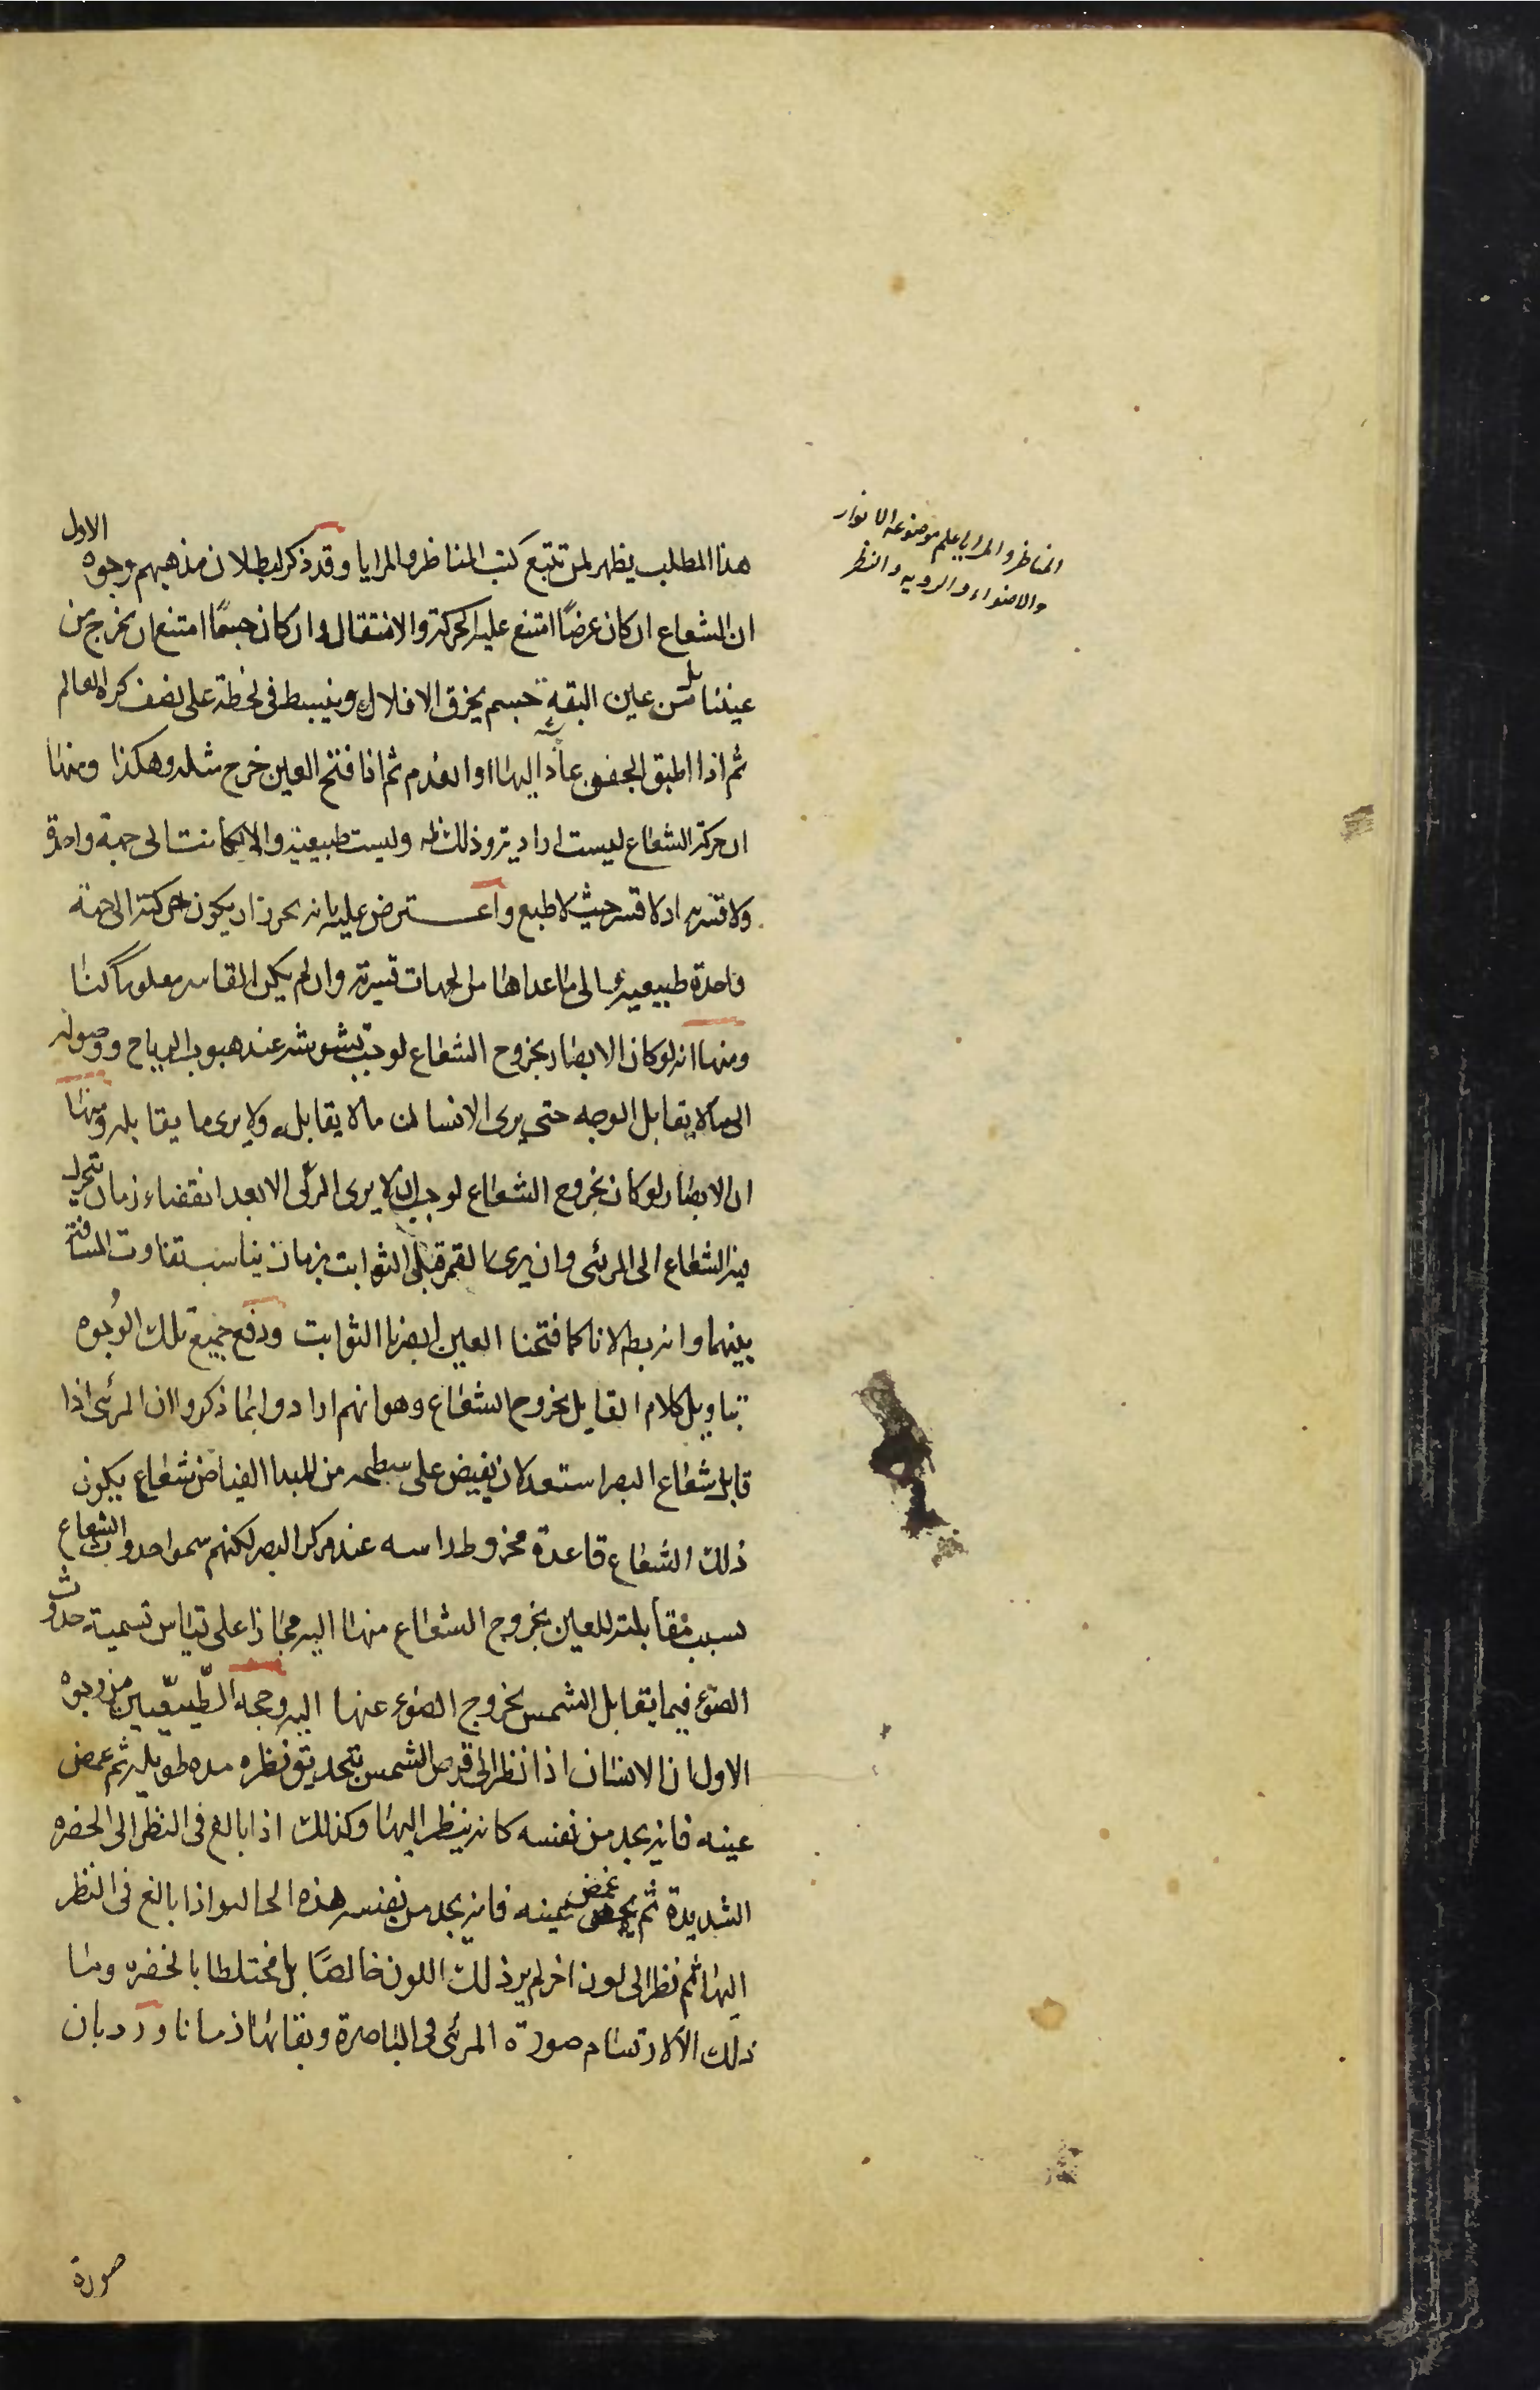 المناظر والمرايا علم موضوعه الانوار
والاضواء والرويه والنظر
هذا المطلب يظهر لمن تتبع كتب المناظر والمرايا وقد ذكر لبطلان مذهبهم وجوه الاول
ان الشعاع ان كان عرضًا امتنع عليه الحركة والانتقال وان كان جسمًا امتنع ان يخرج من
عيننا بل من عين البقة جسم يخرق الافلاك وينبسط فى لحظة على نصف كرة العالم
ثم اذا اطبق الجفن عاد اليها او انعدم ثم اذا فتح العين خرج مثله وهكذا ومنها
ان حركة الشعاع ليست ارادية وذلك ظ وليست طبيعية والا لكانت الى جهة واحدة
ولا قسرية اذ لا قسر حيث لا طبع واعترض عليه بانه يجوز ان يكون حركته الى جهة
واحدة طبيعية والى ما عداها من الجهات قسرية وان لم يكن القاسر معلوما لنا
ومنها انه لو كان الابصار بخروج الشعاع لوجب تشوشه عند هبوب الرياح ووصوله
الى ما لا يقابل الوجه حتى يرى الانسان ما لا يقابله ولا يرى ما يقابله ومنها
ان الابصار لو كان بخروج الشعاع لوجب ان لا يرى المرئى الا بعد انقضاء زمان تحرك
فيه الشعاع الى المرئى وان يرى القمر قبل الثوابت بزمان يناسب تفاوت المسافة
بينهما وانه بط لانا كما فتحنا العين ابصرنا الثوابت ودفع جميع تلك الوُجوه
بتاويل كلام القايل بخروج الشعاع وهو انهم ارادوا بما ذكروا ان المرئى اذا
قابل شعاع البصر استعد لان يفيض على سطحه من المبدا الفياض شعاع يكون
ذلك الشعاع قاعدة مخروط راسه عند مركز البصر لكنهم سموا حدوث الشعاع
بسبب مقابلته للعين بخروج الشعاع منها اليه مجازا على قياس تسمية حدوث
الضوء فيما يقابل الشمس بخروج الضوء عنها اليه وحجة الطّبيعّيين من وجوه
الاول ان الانسان اذا نظر الى قرص الشمس بتحديق نظره مدة طويلة ثم غمض
عينه فانه يجد من نفسه كانه ينظر اليها وكذلك اذا بالغ فى النظر الى الخضرة
الشديدة ثم غمض عينه فانه يجد من نفسه هذه الحالة واذا بالغ فى النظر
اليها ثم نظر الى لون اخر لم ير ذلك اللون خالصًا بل مختلطا بالخضرة وما
ذلك الا لارتسام صورة المرئى فى الباصرة وبقائها زمانا ورد بان
صورة